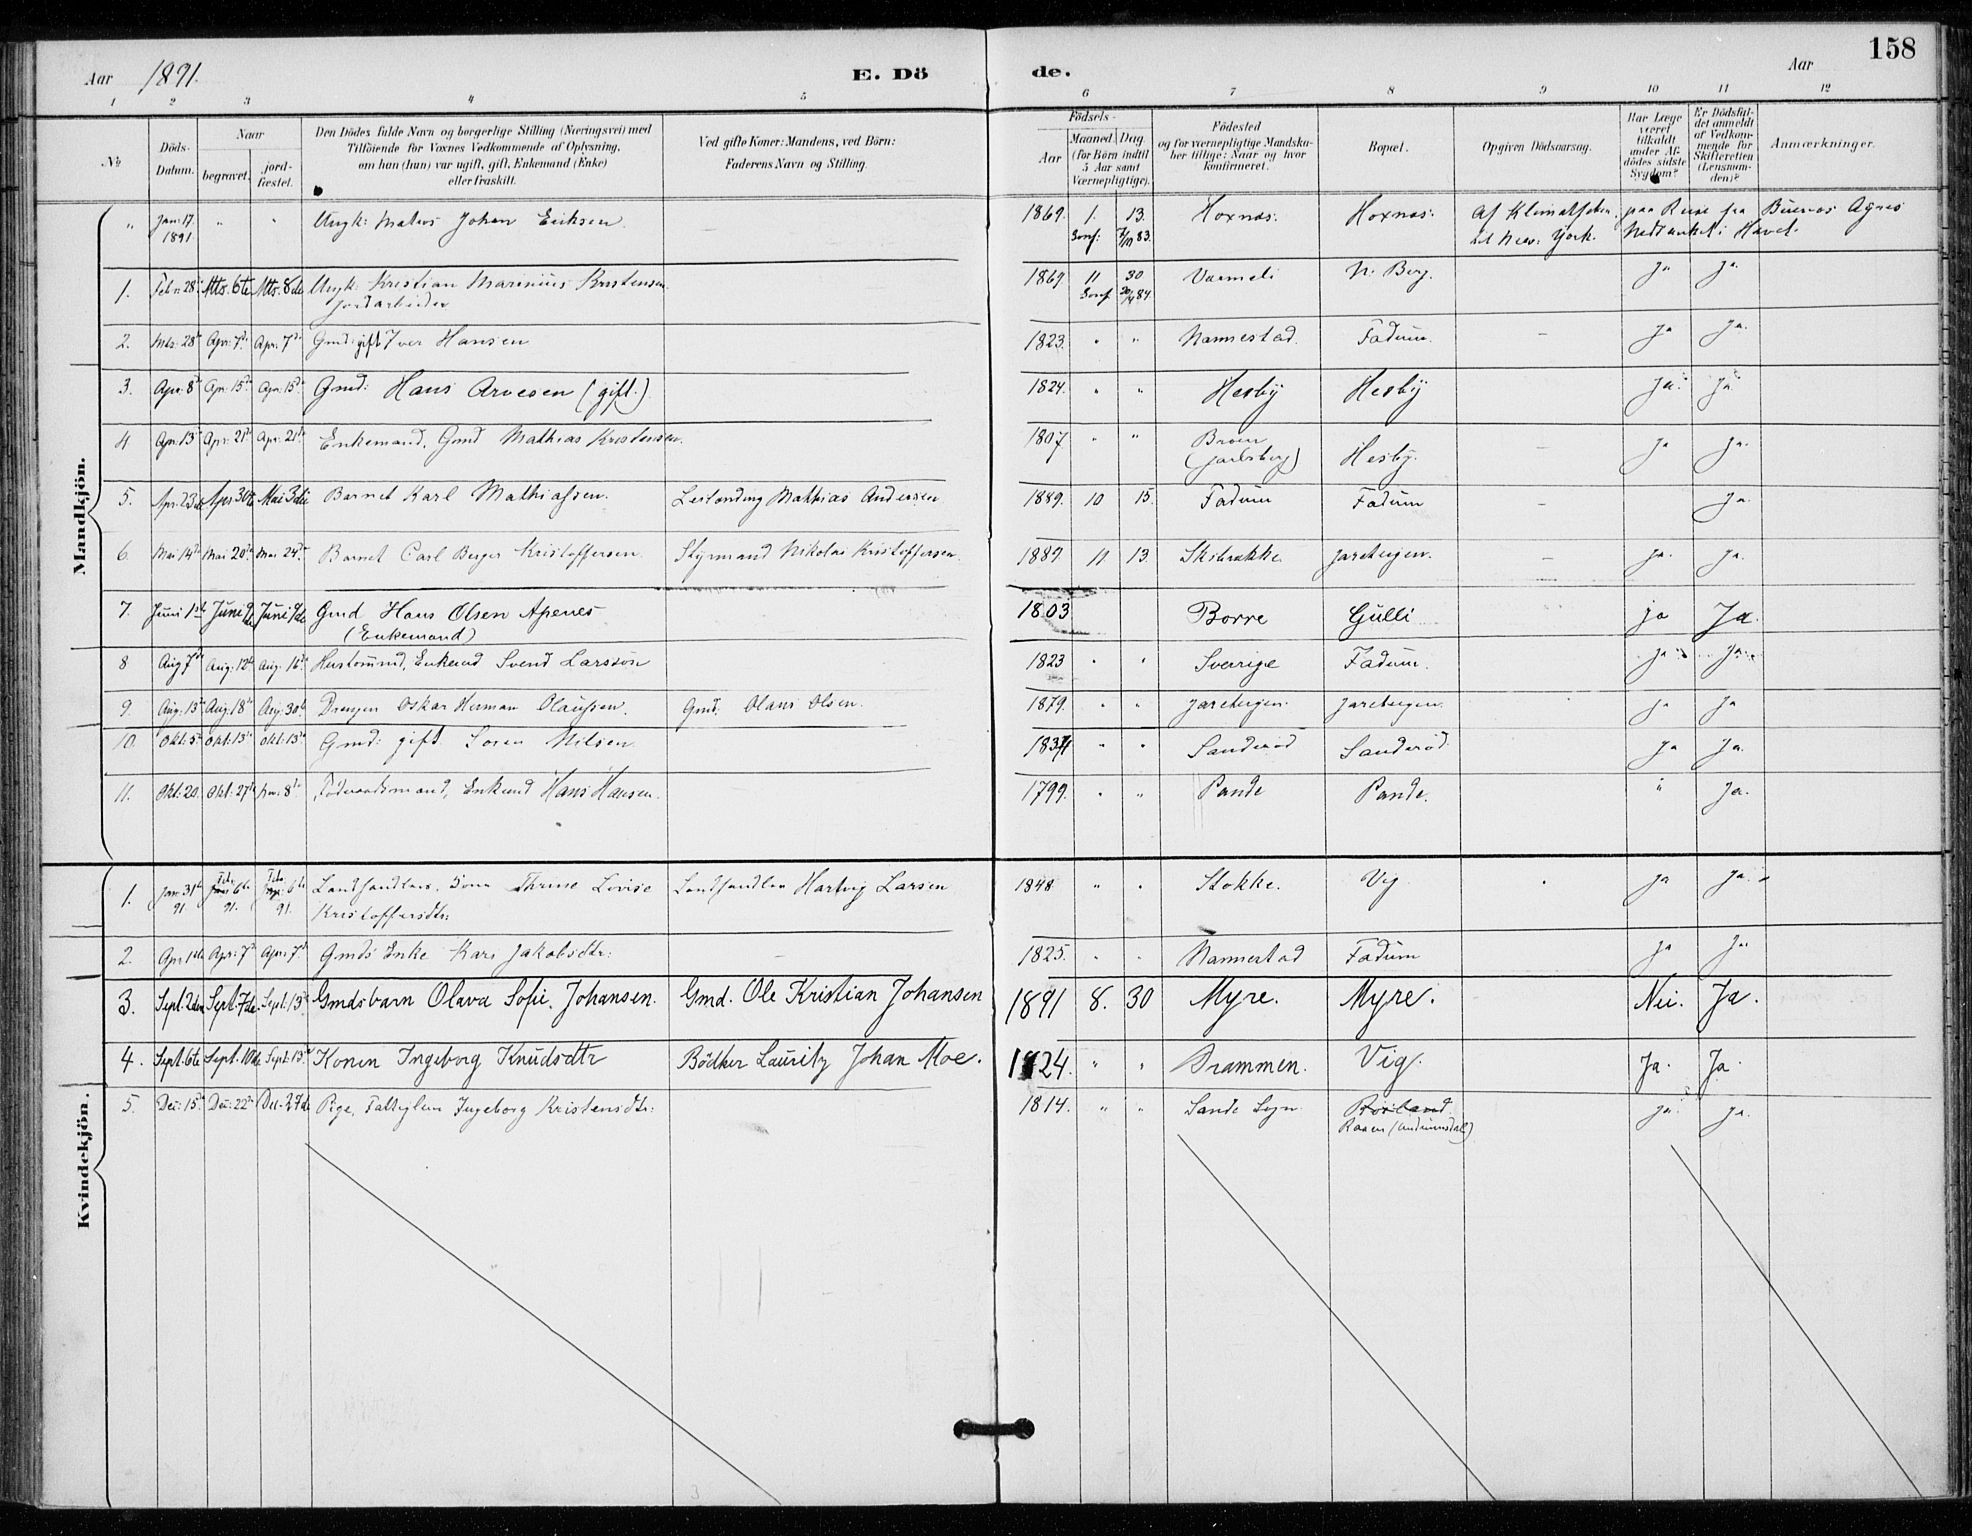 158
Aar 1891. E. Dö de. Aar
1 2 3 4 5 6 7 8 9 10 11 12
No
Döds-Datum.
Naar
begravet.
jord-fæstet.
Den Dödes fulde Navn og borgerlige Stilling (Næringsvei) med
Tilföiende for Voxnes Vedkommende af Oplysning,
om han (hun) var ugift, gift, Enkemand (Enke)
eller fraskilt.
Ved gifte Koner: Mandens, ved Börn:
Faderens Navn og Stilling.
Födsels-
Aar
Maaned. Dag
(for Börn indtil
5 Aar samt
Værnepligtige).
Födested
og for værnepligtige Mandska-
ber tillige: Naar og hvor
konfirmeret.
Bopæl.
Opgiven Dödsaarsag.
Har Læge
været
tilkaldt
under Af-
dödes sidste
Sygdom?
Er Dödsfal-
det anmeldt
af Vedkom-
mende for
Skifteretten
(Lensman-
den)?
Anmærkninger.
Mandkjön.
" Jan: 17. 1891 " " Ungk: Johan Eriksen 1869. 1. 13. Hoxnæs. Hoxnæs. paa Reise fra Buenos Ayres
Konf: 83. til New-York. i Havet.
1. Feb: 28 Mts. 6te Mts. 8de Ungk: Kristian Marinius Kristensen 1869 11 30 N. Berg. ja ja
Jordarbeider Konf 84.
2. Mts: 28 Apr: 7de Apr: 7de Gmd: gift Iver Hansen 1823. " " Nannestad. Fadum. – ja ja.
3. Apr: 8de Apr: 15de Apr: 15de Gmd: Hans Arvesen (gift.) 1824. " " Hesby Hesby ja ja
4 Apr: 13de Apr: 21de Apr: 21de Enkemand, Gmd Mathias Kristensen. 1807. " " (Jarlsberg) Hesby. – ja ja.
5. Apr. 23de Apr 30te Mai 3die Barnet Karl Mathiassen. Mathias Andersen 1889. 10 15. Fadum Fadum – ja.
6. Mai 14de Mai 20de Mai 24de Barnet Carl Berger Kristoffersen. Styrmand Nikolai Kristoffersen. 1889 11 13. Jareteigen. – ja. ja.
7. Juni 1ste Juni 9de Juni 9de Gmd Hans Olsen Apenes 1803 Borre Gulli ja Ja.
(Enkemand)
8 Aug 7de Aug: 12te Aug. 16de Husmand, Enkemd Svend Larsson 1823 " " Sverige Fadum. ja ja.
9. Aug: 13de Aug: 18de Aug: 30te Drengen Oskar Herman Olaussen. Gmd. Olaus Olsen. 1879. " " Jareteigen. Jareteigen. ja ja
10. Okt: 5te Okt: 13de Okt: 13de Gmd: gift Soren Nilsen " " Sanderød Sanderød. ja ja.
11. Okt: 20. Okt: 27de Födraadsmand, Enkemd Hans Hansen. 1799. " " Pande Pande. " Ja.
Kvindekjön.
1. Jan: 31te 91. Feb 6te 91. Feb 6te 91. Landhandlers Kone Thrine Lovise Landhandler Hartvig Larsen 1848 " " Stokke. Vig ja ja.
Kristoffersdtr:
2. Apr 1ste Apr: 7de Apr: 7de Gmds Enke Kari Jakobsdtr: – 1825. " " Nannestad Fadum ja ja
3. Sept. 2den Sept. 7de. Sept: 13de Gmdsbarn Olava Sofie, Johansen. Gmd. Ole Kristian Johansen 1891 8. 30 Myre. Myre. Nei. Ja.
4. Sept. 6te Sept. 10de Sept: 13de Konen Ingeborg Knudsdtr Bödker Lauritz Johan Moe. 1824. " " Drammen. Vig. Ja. Ja
5. Dec: 15de Dec: 22de Dec. 27de Pige, Fattiglem Ingeborg Kristensdtr: 1814. " " Sande Sogn Raaen ja. ja.